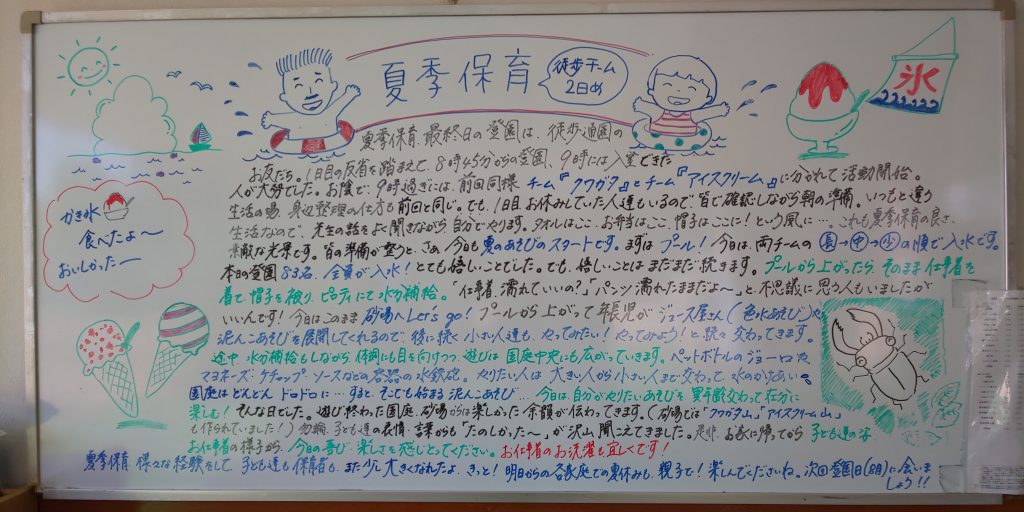 夏季保育
徒歩チーム
2日め
氷
夏季保育、最終日の登園は、徒歩通園の
お友だち。1日目の反省を踏まえて、8時45分からの登園、9時には入室できた
人が大勢でした。お陰で、9時過ぎには、前回同様 チーム『クワガタ』とチーム『アイスクリーム』に分かれて活動開始。
生活の場、身辺整理の仕方も前回と同じ。でも、1日目お休みしていた人達もいるので皆で確認しながら朝の準備。いつもと違う
生活なので、先生の話をよく聞きながら自分でやります。タオルはここ、お弁当はここ、帽子はここに！という風に… これも夏季保育の良さ、
素敵な光景です。皆の準備が整うと、さぁ今日も夏のあそびのスタートです。まずはプール！今日は、両チームの(長)→(中)→(少)の順で入水です。
本日の登園83名、全員が入水！とても嬉しいことでした。でも、嬉しいことはまだまだ続きます。プールから上がったら、そのまま仕事着を
着て、帽子を被り、ピロティにて水分補給。「仕事着、濡れていいの？」「パンツ濡れたままだよ〜」と、不思議に思う人もいましたが
いいんです！今日はこのまま砂場へLet's go！プールから上がって年長児がジュース屋さん（色水あそび）や
泥んこあそびを展開してくれるので、後に続く小さい人達も、やってみたい！やってみよう！と続々交わってきます。
途中、水分補給もしながら、体調にも目を向けつつ、遊びは園庭中央にも広がっていきます。ペットボトルのジョーロや
マヨネーズ・ケチャップ・ソースなどの容器の水鉄砲。やりたい人は大きい人から小さい人まで交わって、水のかけあい
園庭はどんどんドロドロに…すると、そこでも始まる泥んこあそび… 今日は、自分がやりたいあそびを異年齢交わって存分に
楽しむ！そんな日でした。遊び終わった園庭、砂場からは楽しかった余韻が伝わってきます。（砂場では「クワガタ山」「アイスクリーム山」
も作られていました！）勿論、子ども達の表情、言葉からも「たのしかった〜」が沢山聞こえてきました。是非、お家に帰ってから子ども達の
お仕事着の様子から、今日の喜び・楽しさを感じとってください。お仕事着のお洗濯も宜しくです！
夏季保育 様々な経験をして、子ども達も保育者も、また少し大きくなれたよ、きっと！明日からの各家庭での夏休みも、親子で！楽しんでくださいね。次回登園日に会いま
しょう！！
かき氷
食べたよ〜
おいしかったー